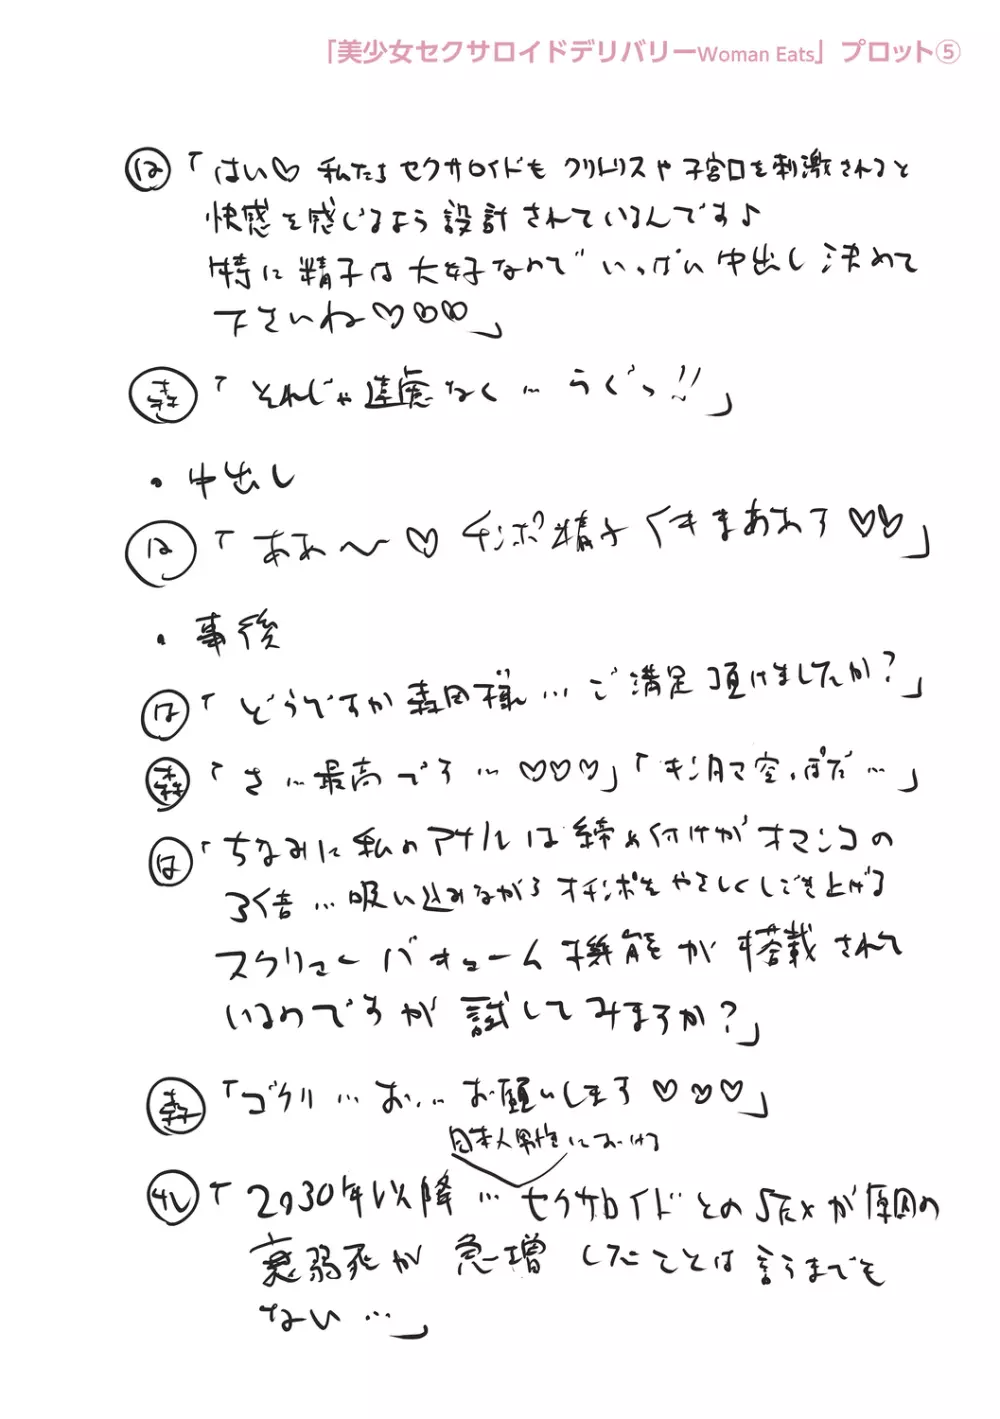 「美少女セクサロイドデリバリーWoman Eats」プロット⑤
は「はい♡私たちセクサロイドもクリトリスや子宮口を刺激されると
快感を感じるよう設計されているんです♪
特に精子は大好なので いっぱい中出し決めて
下さいね♡♡♡」
森「それじゃ遠慮なく…うぐっ!!」
・中出し
は「ああ〜♡チンポ精子 くきまあおす♡♡」
・事後
は「どうですか森田様…ご満足頂けましたか?」
森「さ…最高です…♡♡♡」「キンタマ空っぽだ…」
は「ちなみに私のアナルは締め付けがオマンコの
3倍…吸い込みながらオチンポをやさしくしごき上げる
スクリューバキューム機能が搭載されて
いるのですが試してみますか?」
森「ゴクリ…お…お願いします♡♡♡」
日本人男性における
ナレ「2030年以降…セクサロイドとのSEXが原因の
衰弱死が急増したことは言うまでも
ない…」